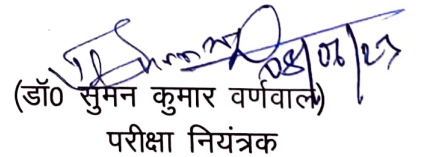 08/06/23
(डॉ0 सुमन कुमार वर्णवाल)
परीक्षा नियंत्रक